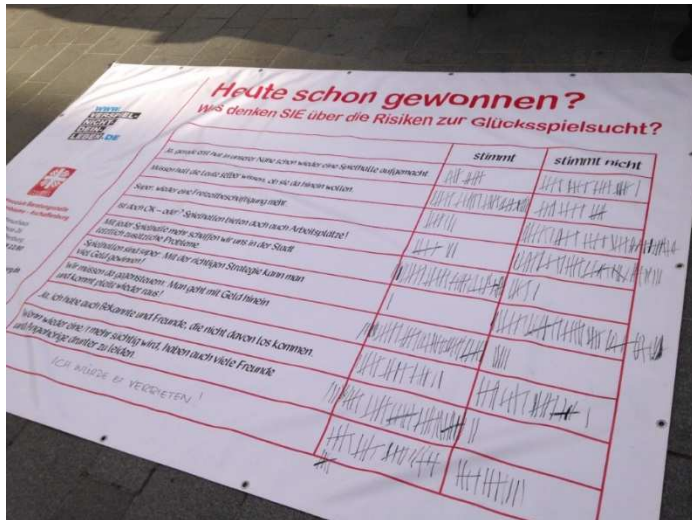 Heute schon gewonnen?
Was denken SIE über die Risiken zur Glücksspielsucht?
WWW.
VERSPIEL-
NICHT-
DEIN-
LEBEN.DE
stimmt
stimmt nicht
Ja, gerade erst hat in unserer Nähe schon wieder eine Spielhalle aufgemacht
Müssen halt die Leute selber wissen, ob sie da hinein wollen.
Super, wieder eine Freizeitbeschäftigung mehr.
Ist doch OK – oder? Spielhallen bieten doch auch Arbeitsplätze!
Mit jeder Spielhalle mehr schaffen wir uns in der Stadt
letztlich zusätzliche Probleme.
Spielhallen sind super. Mit der richtigen Strategie kann man
viel Geld gewinnen!
Wir müssen da gegensteuern. Man geht mit Geld hinein
und kommt pleite wieder raus!
Ja, ich habe auch Bekannte und Freunde, die nicht davon los kommen.
Wenn wieder eine/r mehr süchtig wird, haben auch viele Freunde
und Angehörige drunter zu leiden.
ICH WÜRDE ES VERBIETEN!